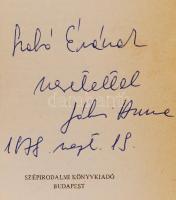 Szabó Évának
szeretettel
Jókai Anna
1978. szept. 15.
SZÉPIRODALMI KÖNYVKIADÓ
BUDAPEST